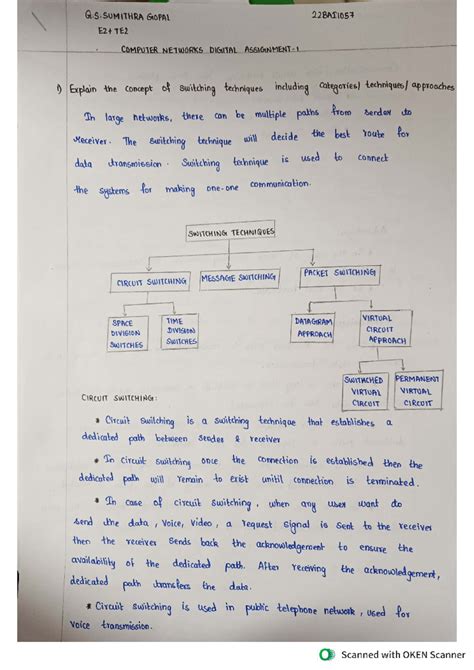 G.S.SUMITHRA GOPAL 22BAI1057
E2+TE2
COMPUTER NETWORKS DIGITAL ASSIGNMENT-1
1) Explain the concept of switching techniques including categories/ techniques/ approaches
In large networks, there can be multiple paths from sender to
receiver. The switching technique will decide the best route for
data transmission. Switching technique is used to connect
the systems for making one-one communication.
SWITCHING TECHNIQUES
CIRCUIT SWITCHING MESSAGE SWITCHING PACKET SWITCHING
SPACE
DIVISION
SWITCHES
TIME
DIVISION
SWITCHES
DATAGRAM
APPROACH
VIRTUAL
CIRCUIT
APPROACH
SWITCHED
VIRTUAL
CIRCUIT
PERMANENT
VIRTUAL
CIRCUIT
CIRCUIT SWITCHING:
* Circuit switching is a switching technique that establishes a
dedicated path between sender & receiver
* In circuit switching once the connection is established then the
dedicated path will remain to exist unitil connection is terminated.
* In case of circuit switching, when any user want to
send the data, voice, video, a request signal is sent to the receiver
then the receiver sends back the acknowledgement to ensure the
availability of the dedicated path. After receiving the acknowledgement,
dedicated path transfers the data.
* Circuit switching is used in public telephone network, used for
voice transmission.
Scanned with OKEN Scanner